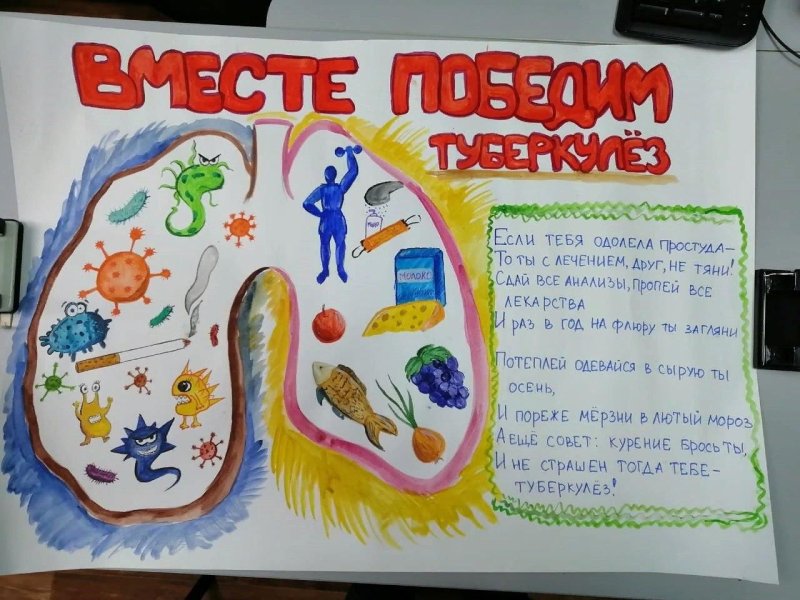 ВМЕСТЕ ПОБЕДИМ
ТУБЕРКУЛЁЗ
ЕСЛИ ТЕБЯ ОДОЛЕЛА ПРОСТУДА–
ТО ТЫ С ЛЕЧЕНИЕМ, ДРУГ, НЕ ТЯНИ!
СДАЙ ВСЕ АНАЛИЗЫ, ПРОПЕЙ ВСЕ
ЛЕКАРСТВА
И РАЗ В ГОД НА ФЛЮРУ ТЫ ЗАГЛЯНИ
ПОТЕПЛЕЙ ОДЕВАЙСЯ В СЫРУЮ ТЫ
ОСЕНЬ,
И ПОРЕЖЕ МЁРЗНИ В ЛЮТЫЙ МОРОЗ
А ЕЩЁ СОВЕТ: КУРЕНИЕ БРОСЬ ТЫ,
И НЕ СТРАШЕН ТОГДА ТЕБЕ–
ТУБЕРКУЛЁЗ!
МОЛОКО